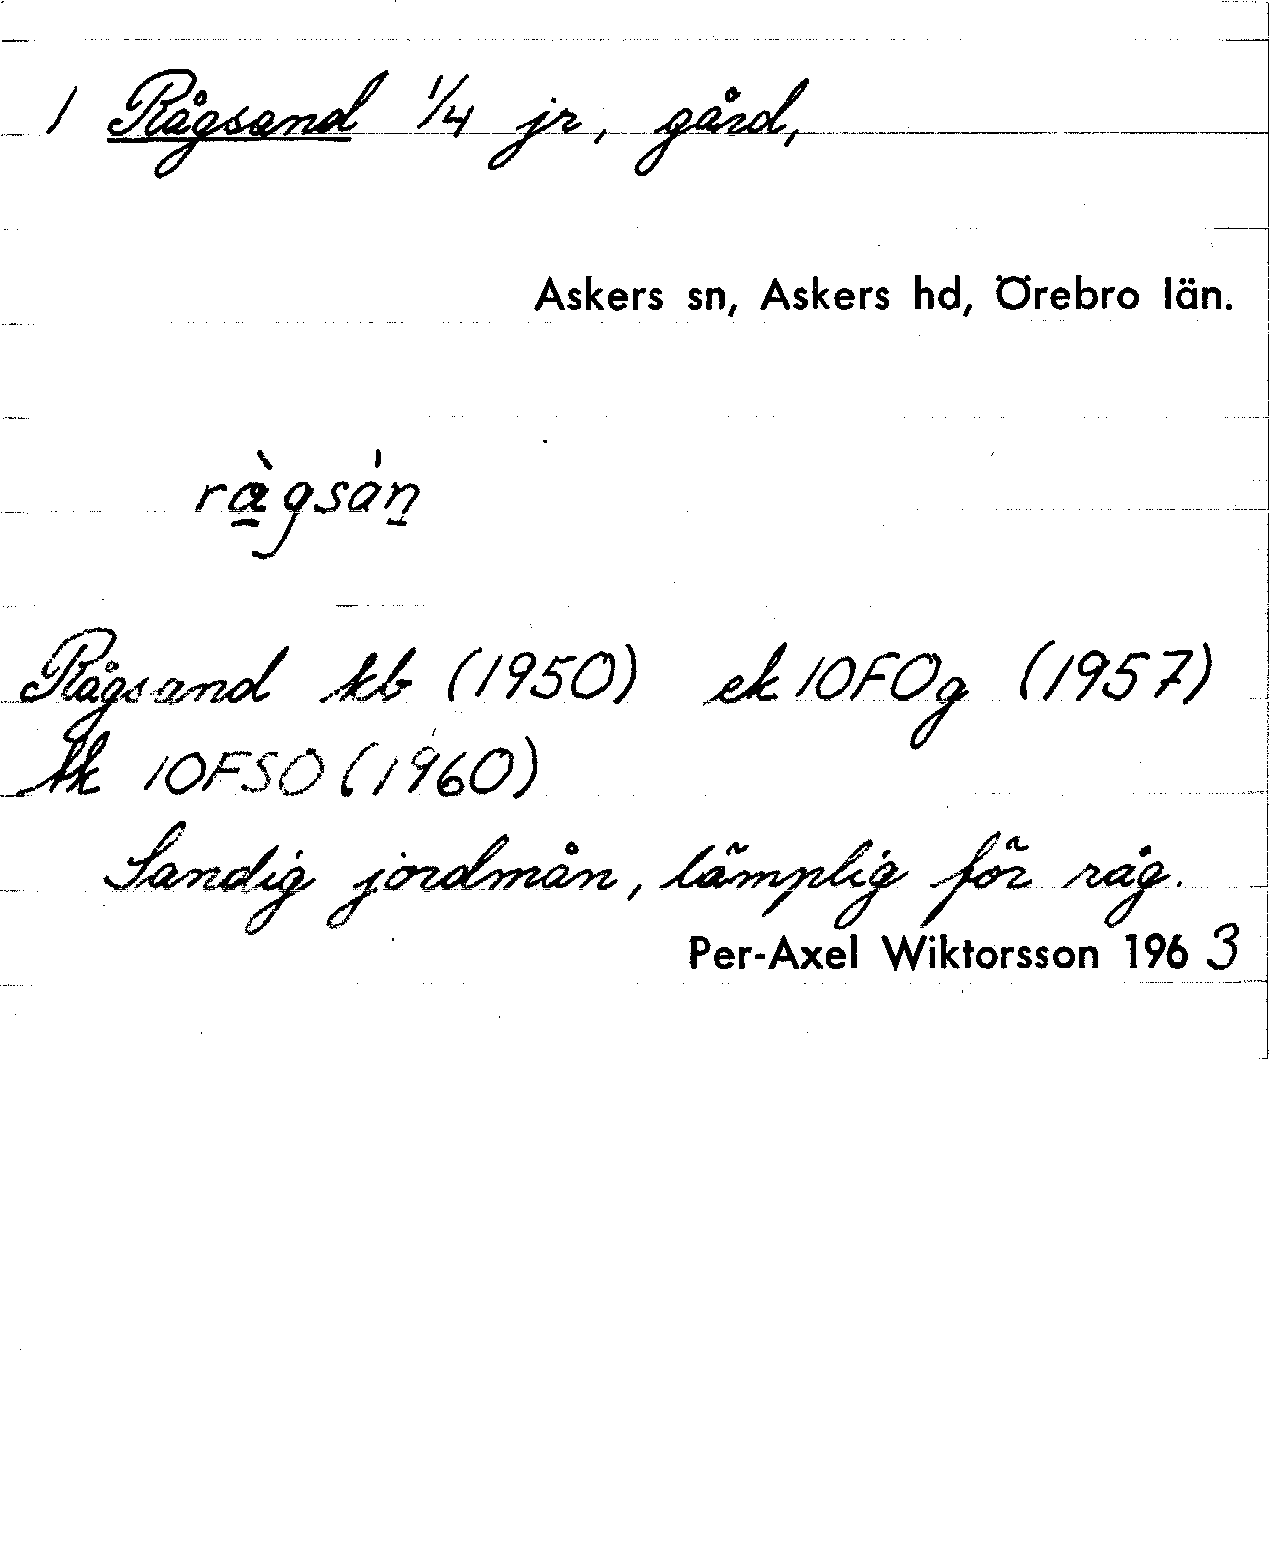 1 Rågsand 1/4 jr, gård,
Askers sn, Askers hd, Örebro län.
ràgsán
Rågsand kb (1950) ek 10F0g (1957)
tk 10FSO (1960)
Sandig jordmån, lämplig för råg.
Per-Axel Wiktorsson 1963